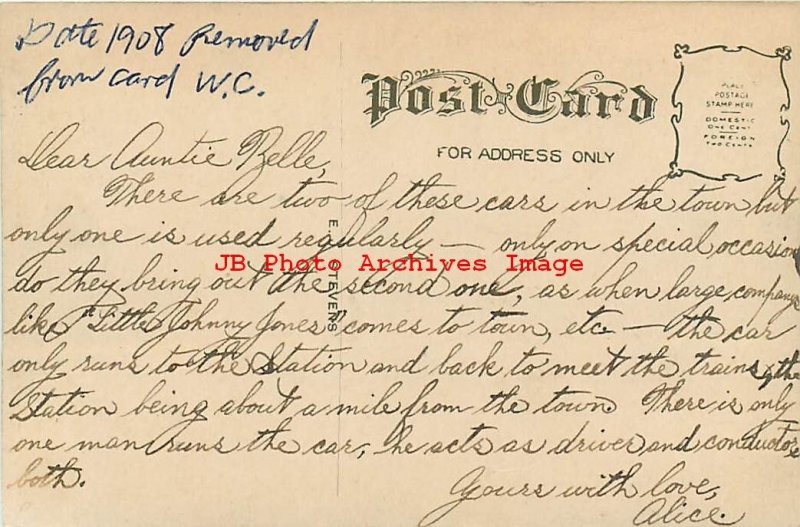 Date 1908 Removed
from card W.C.
Post Card
FOR ADDRESS ONLY
PLACE
POSTAGE
STAMP HERE
DOMESTIC
ONE CENT
FOREIGN
TWO CENTS
Dear Auntie Belle,
There are two of these cars in the town but
only one is used regularly — only on special occasion
do they bring out the second one, as when large company
like "Little Johnny Jones comes to town, etc — the car
only runs to the Station and back to meet the trains, the
Station being about a mile from the town. There is only
one man runs the car, he acts as driver and conductor
both.
Yours with love,
Alice.
JB Photo Archives Image
STEVENS